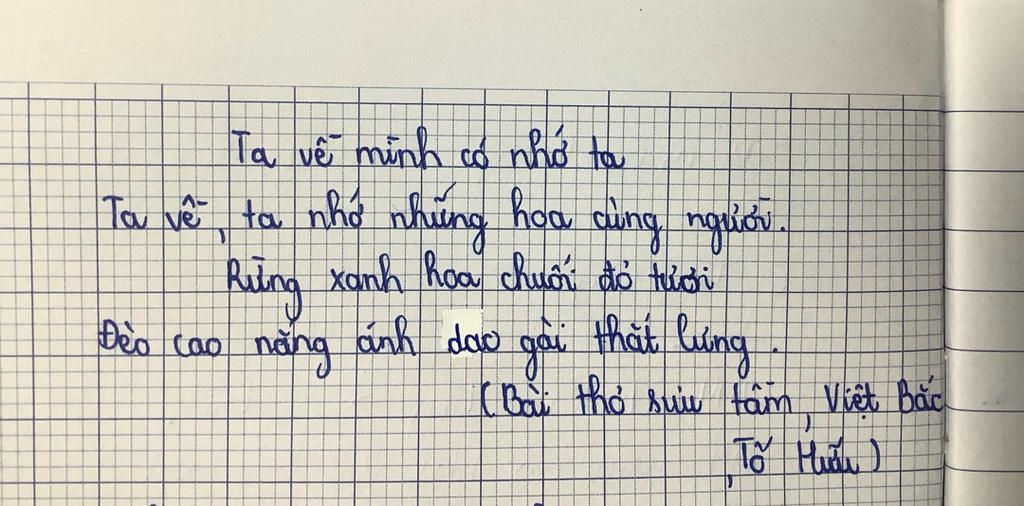 Ta về mình có nhớ ta
Ta về, ta nhớ những hoa cùng người.
Rừng xanh hoa chuối đỏ tươi
Đèo cao nắng ánh dao gài thắt lưng.
(Bài thơ sưu tầm, Việt Bắc
, Tố Hữu)